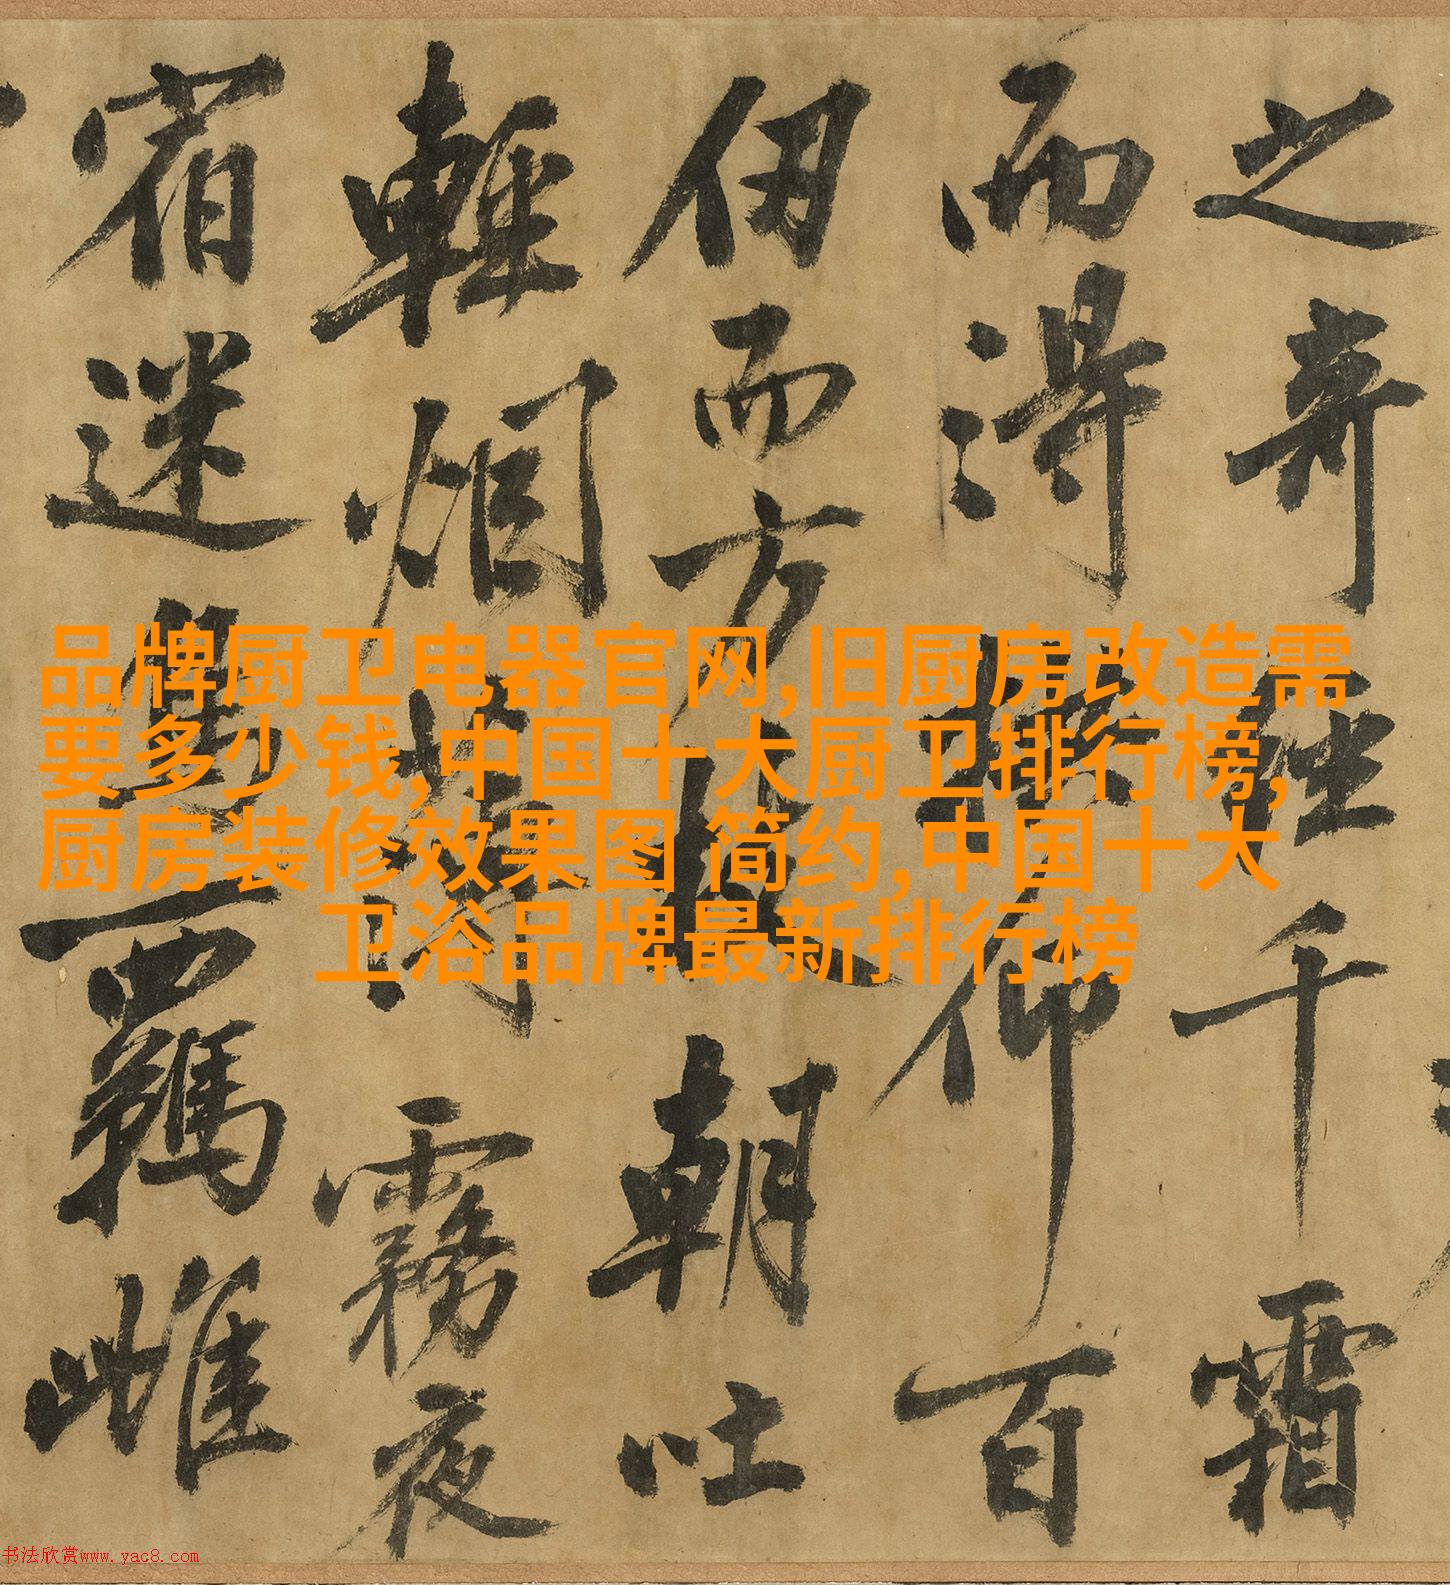 之奇千霜
而得仰百
仞而方朝吐
輕烟薄霧夜
宿迷羈雌
品牌厨卫电器官网,旧厨房改造需
要多少钱,中国十大厨卫排行榜,
厨房装修效果图 简约,中国十大
卫浴品牌最新排行榜
书法欣赏www.yac8.com